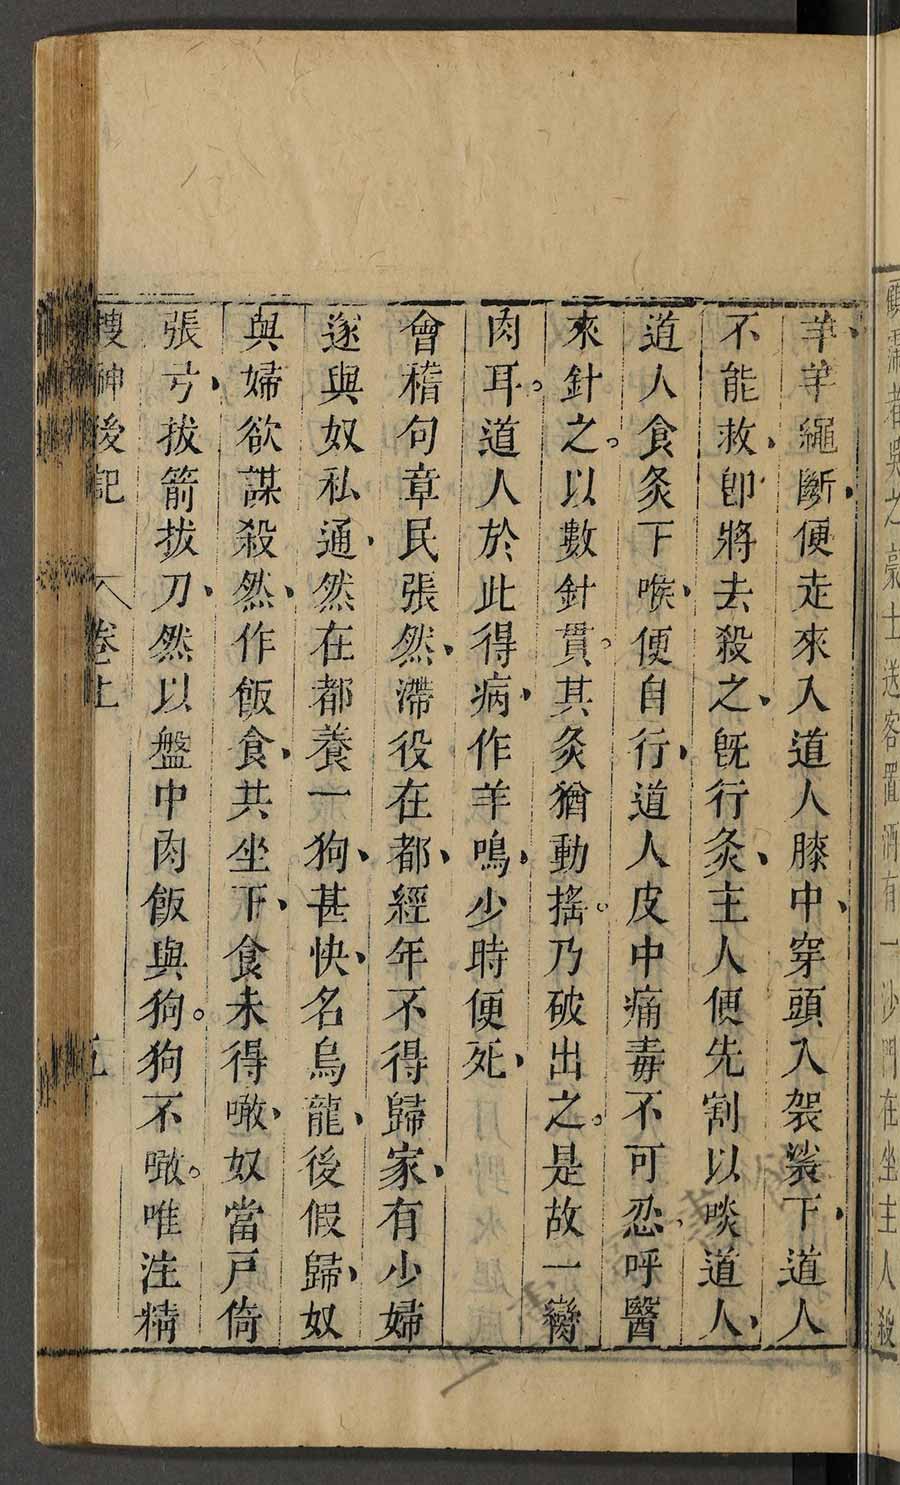 顧霈者吳之豪士送客置酒有一沙門在坐主人殺
羊羊繩斷便走來入道人膝中穿頭入袈裟下道人
不能救卽將去殺之旣行炙主人便先割以啖道人
道人食炙下喉便自行道人皮中痛毒不可忍呼醫
來針之以數針貫其炙猶動搖乃破出之是故一臠
肉耳道人於此得病作羊鳴少時便死
會稽句章民張然滯役在都經年不得歸家有少婦
遂與奴私通然在都養一狗甚快名烏龍後假歸奴
與婦欲謀殺然作飯食共坐下食未得噉奴當戸倚
張弓拔箭拔刀然以盤中肉飯與狗狗不噉唯注精
搜神後記 卷上 五